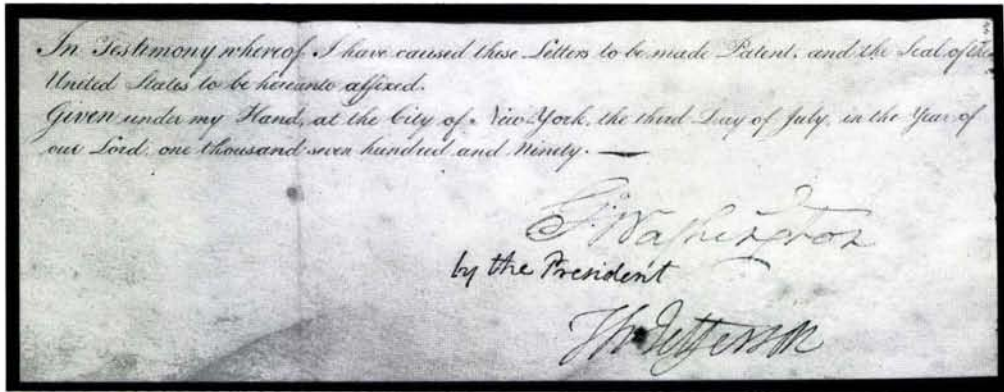 In Testimony whereof I have caused these Letters to be made Patent, and the Seal of the
United States to be hereunto affixed.
Given under my Hand, at the City of New York, the third Day of July, in the Year of
our Lord, one thousand seven hundred and Ninety. —
G:Washington
by the President
Th: Jefferson